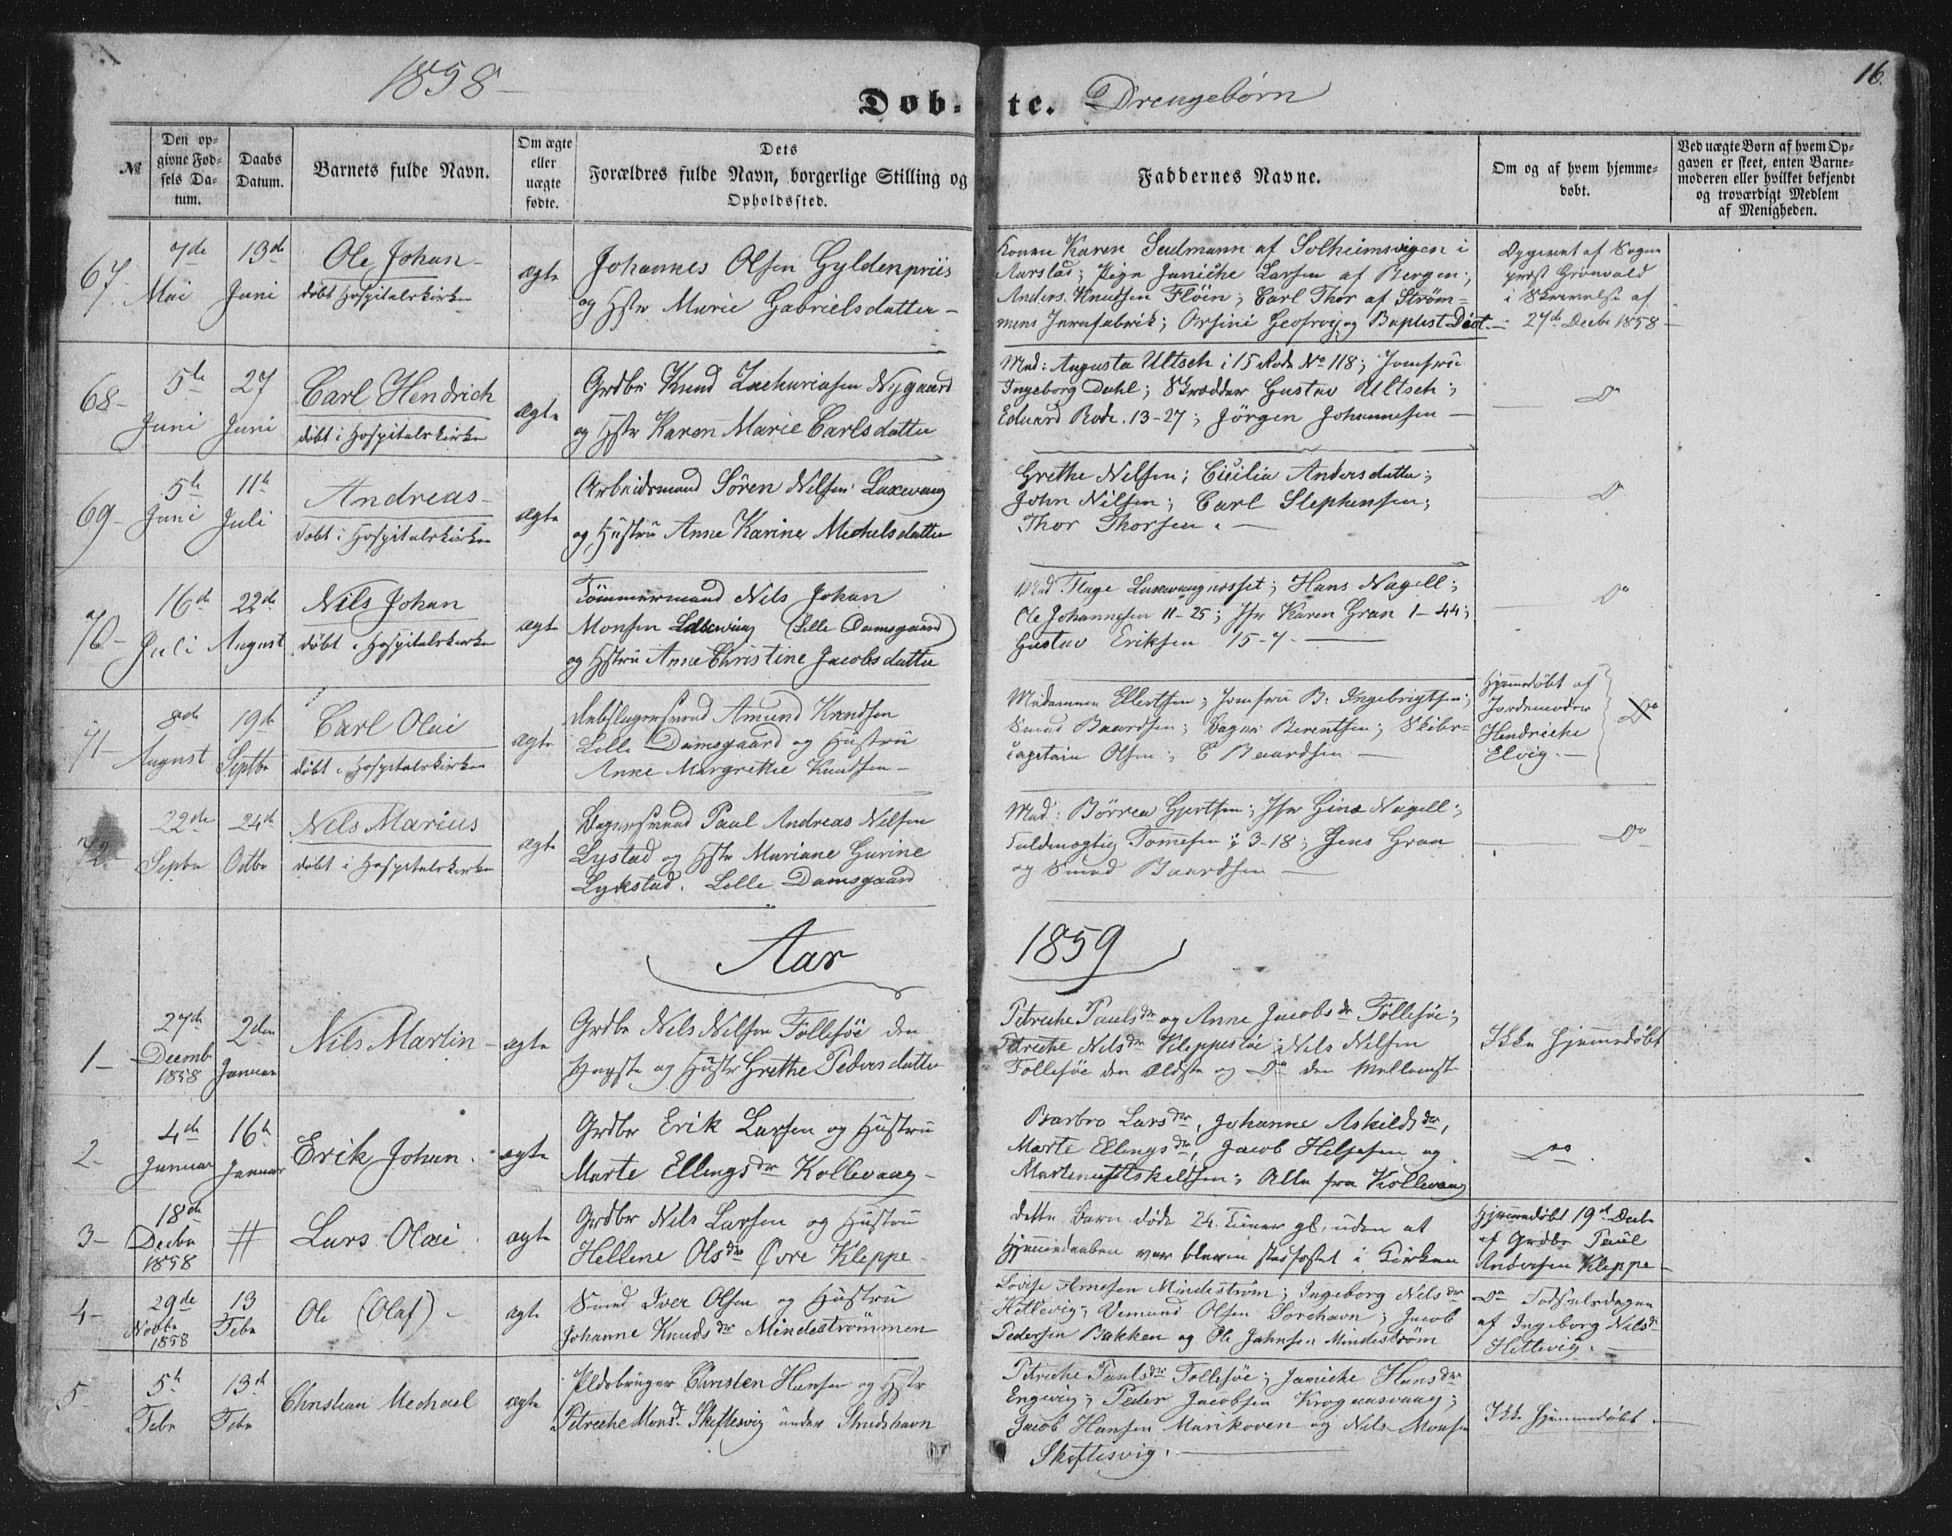 1858
Døb-te. Drengebørn
16.
№
Den op-
givne Fød-
sels Da-
tum.
Daabs
Datum.
Barnets fulde Navn.
Om ægte
eller
uægte
fødte.
Dets
Forældres fulde Navn, borgerlige Stilling og
Opholdssted.
Faddernes Navne.
Om og af hvem hjemme-
døbt.
Ved uægte Børn af hvem Op-
gaven er skeet, enten Barne-
moderen eller hvilket bekjendt
og troværdigt Medlem
af Menigheden.
67
7de
Mai
13de
Juni
Ole Johan
døbt Hospitalskirken
ægte
Johannes Olsen Gyldenpriis
og Hstr Marie Gabrielsdatter
Konen Karen Seulmann af Solheimsvigen i
Aarstad; Pige Janiche Larsen af Bergen;
Anders Knudsen Fløen; Carl Thor af Strøm-
mens Jernfabrik; og Baptist
Opgivet af Sogne
præst Grønvold
i Skrivelse af
27de Decbr 1858
68
5te
Juni
27
Juni
Carl Hendrich
døbt i Hospitalskirken
ægte
Grdbr Knud Zachariasen Nygaard
og Hstr Karen Marie Carlsdatter
Mad: Augusta Ultsch i 15 Rode No 118; Jomfru
Ingeborg Dahl; Skrædder Gustav Ultsch;
Eduard Rode 13-27; Jørgen Johannesen
Do
69
5te
Juni
11te
Juli
Andreas
døbt i Hospitalskirken
ægte
Arbeidsmand Søren Nilsen Laxevaag
og Hustru Anne Karine Michelsdatter
Grethe Nilsen; Cicilia Andersdatter;
John Nilsen; Carl Stephensen;
Thor Thorsen.
Do
70
16de
Juli
22de
August
Nils Johan
døbt i Hospitalskirken
ægte
Tømmermand Nils Johan
Monsen Laxevaag (Lille Damsgaard)
og Hstru Anne Christine Jacobsdatter
Mad Flage Laxevaagnæsset; Hans Nagell;
Ole Johannesen 11-25; Jfr Karen Gran 1-44;
Gustav Eriksen 15-7.
Do
71
8de
August
19de
Septbr
Carl Olai
døbt i Hospitalskirken
ægte
Rebslagersvend Amund Knudsen
Lille Damsgaard og Hustru
Anne Margrethe Knudsen
Madamme Ellertsen; Jomfru B. Ingebrigtsen;
Smed Baardsen; Bager Berentsen; Skibs-
capitain Olsen; Baardsen
Hjemmedøbt af
Jordemoder
Hendriche
Elvig.
Do
72
22de
Septbr
24de
Octbr
Nils Marius
døbt i Hospitalskirken
ægte
Bagersvend Paul Andreas Nilsen
Lystad og Hstr Mariane Gurine
Lystad. Lille Damsgaard
Mad: Børrea Gjertsen; Jfr Gina Nagell;
Fuldmægtig Tønnesen 3-18; Jens Gran
og Smed Baardsen
Do
Aar 1859
1
27de
Decemb
1858
2den
Januar
Nils Martin
ægte
Grdbr Nils Nilsen Follesøe den
Yngste og Hustr Grethe Pedersdatter
Petriche Paulsdr og Anne Jacobsdr Follesøe;
Petriche Nilsdr Kleppestøe; Nils Nilsen
Follesøe den Ældste og Do den Mellemste
Ikke Hjemmedøbt
2
4de
Januar
16de
Januar
Erik Johan
ægte
Grdbr Erik Larsen og Hustru
Marte Ellingsdr Kollevaag
Barbro Larsdr, Johanne Askildsdr,
Marte Ellingsdr, Jacob Helgesen og
Martinus Askeldsen; Alle fra Kollevaag
Do
3
18de
Decbr
1858
#
Lars Olai
ægte
Grdbr Nils Larsen og Hustru
Hellene Olsdr Øvre Kleppe
Dette Barn døde 24 Timer gl. uden at
Hjemmedaaben var bleven stadfæstet i Kirken
Hjemmedøbt 19de Decbr
af Grdbr Paul
Andersen Kleppe
4
29de
Novbr
1858
13
Febr
Ole (Olaf)
ægte
Smed Iver Olsen og Hustru
Johanne Knudsdr Mindestrømmen
Lovise Arnesen Mindestrøm; Ingeborg Nilsdr
Hetlevig; Vemund Olsen Torehavn; Jacob
Pedersen Bakken og Ole Jahnsen Mindestrøm
Do Fødselsdagen
af Ingeborg Nilsdr
Hetlevig.
5
5te
Febr
13de
Febr
Christian Mechael
ægte
Pladsbruger Christen Hansen og Hstr
Petriche Monsdr Skeftesvig under Strudshavn
Petriche Paulsdr Follesøe; Janiche Hansdr
Engevig; Peder Jacobsen Krogaasvaag;
Jacob Hansen Marikoven og Nils Monsen
Skeftesvig.
Ikke Hjemmedøbt